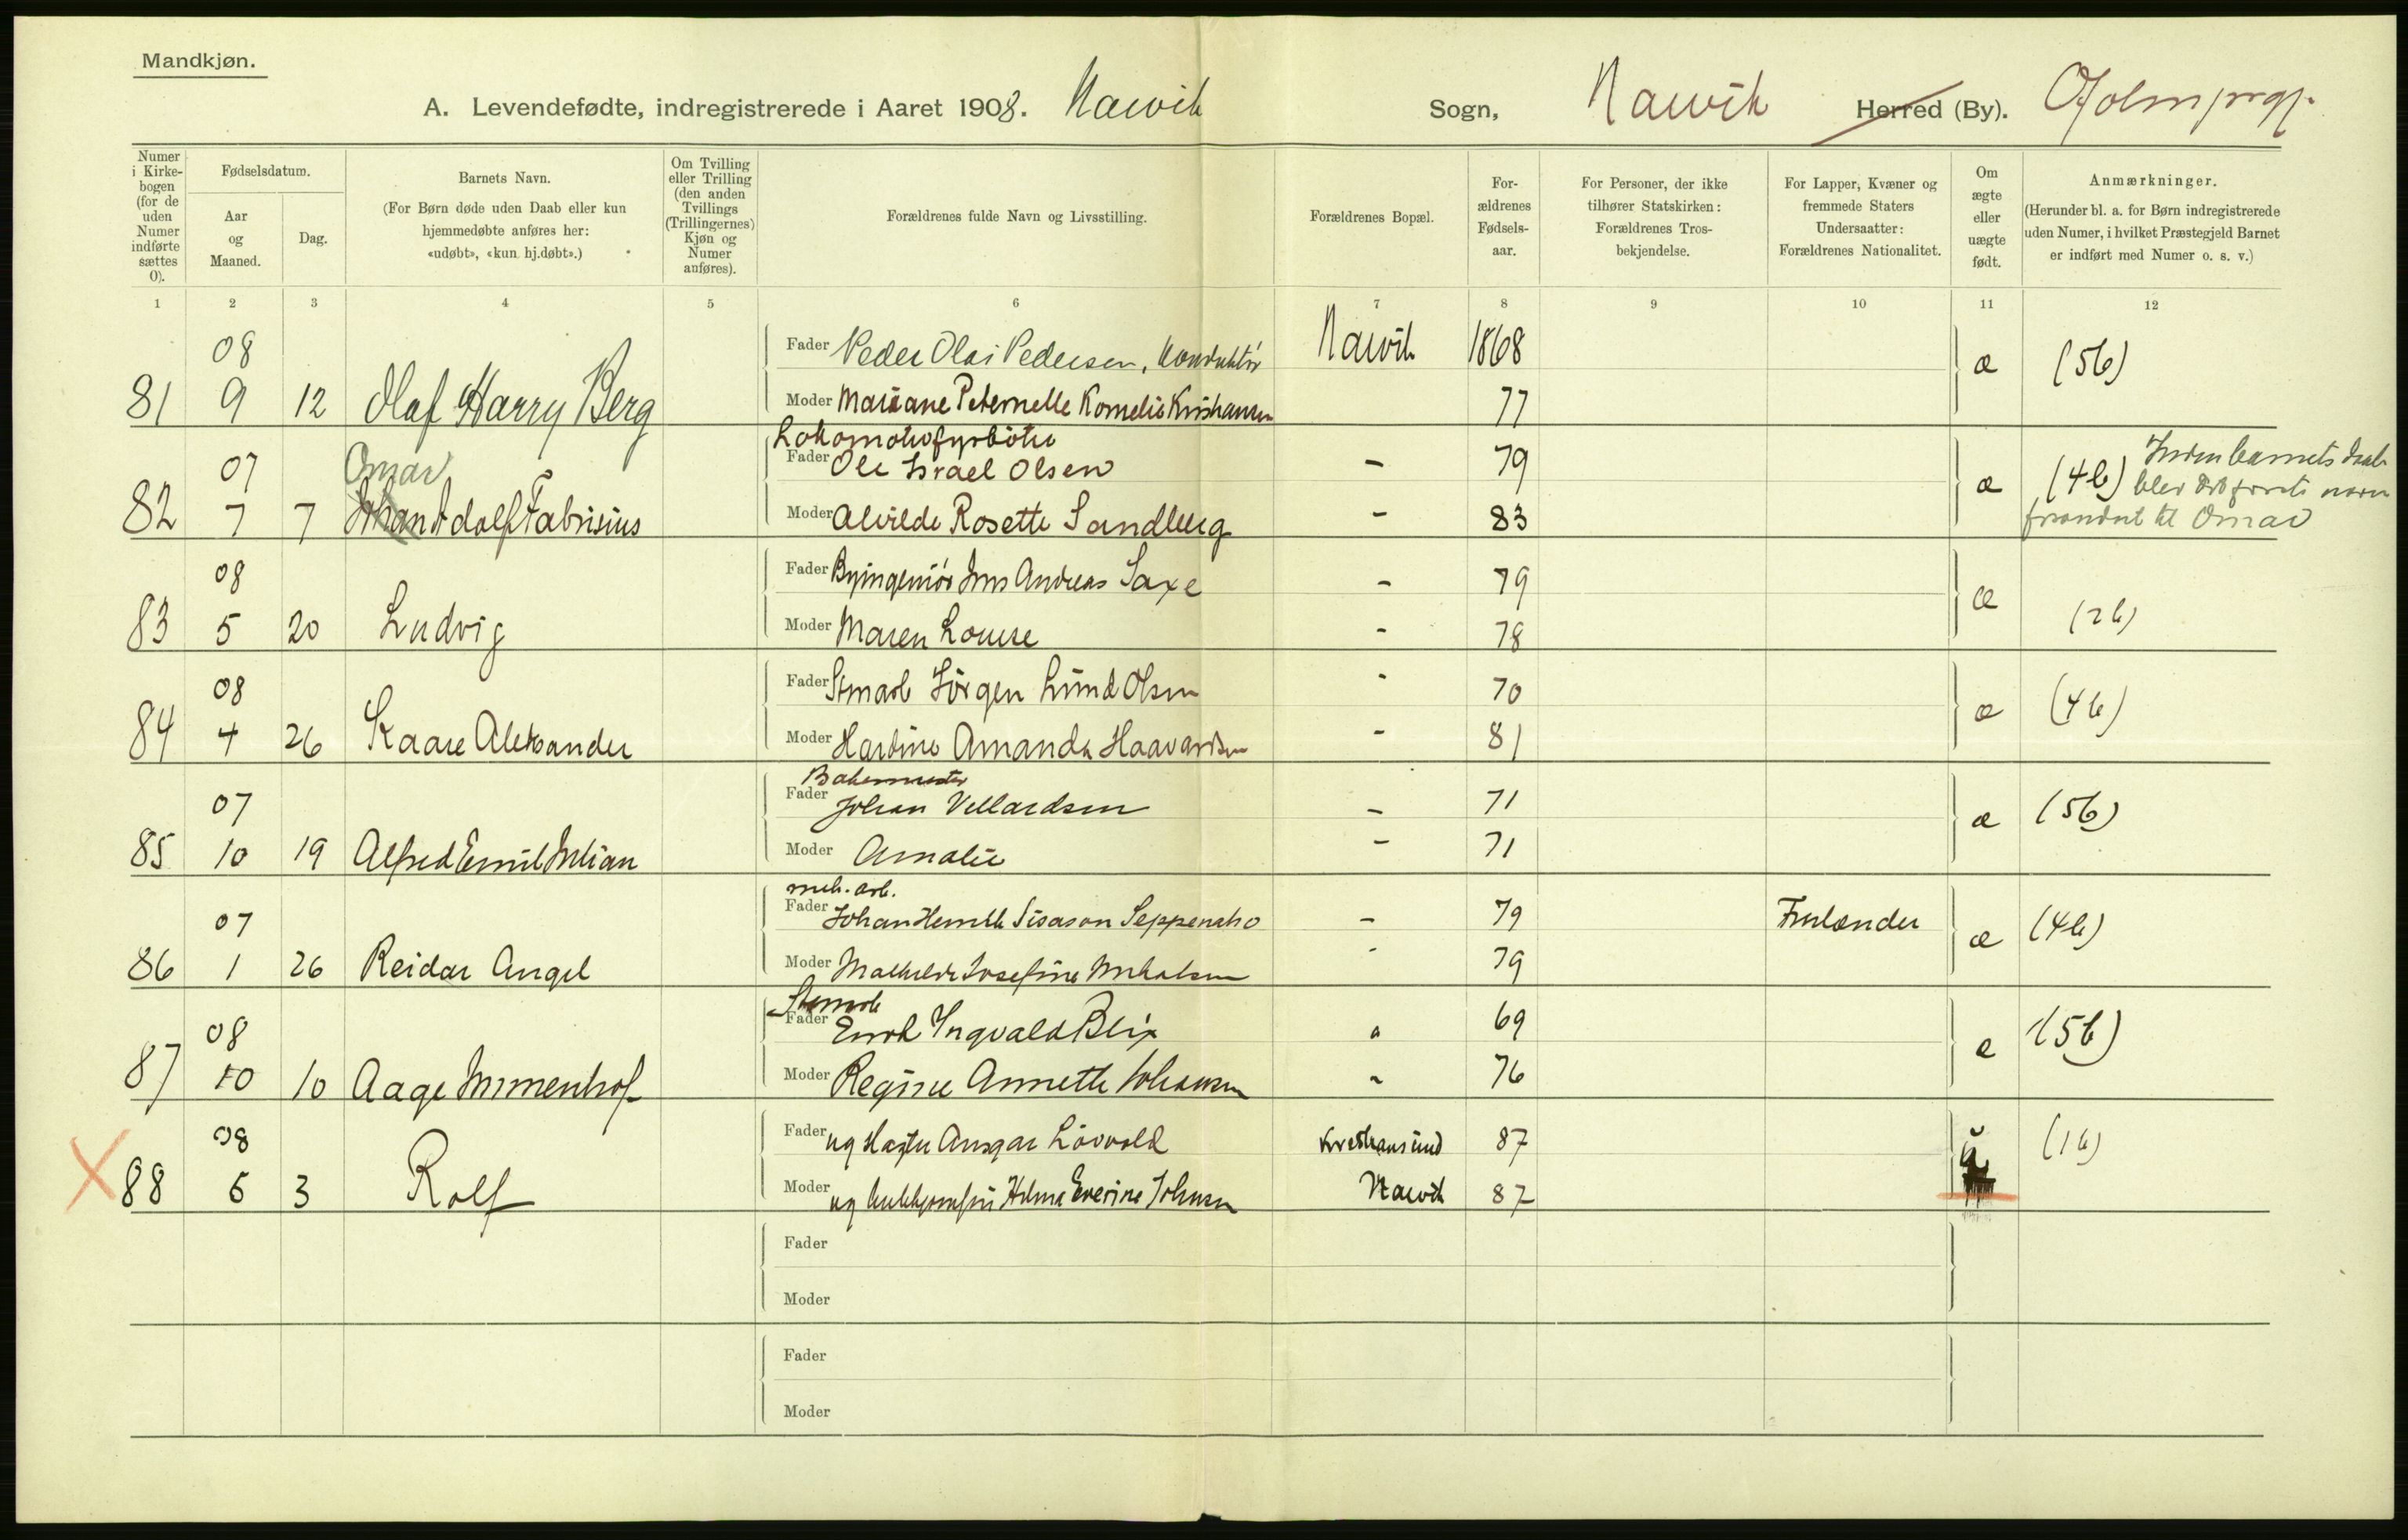 Mandkjøn.
A. Levendefødte, indregistrerede i Aaret 1908. Narvik Sogn, Narvik Herred (By).
Numer i Kirkebogen (for de uden Numer indførte sættes 0).
Fødselsdatum.
Aar og Maaned.
Dag.
Barnets Navn.
(For Børn døde uden Daab eller kun hjemmedøbte anføres her: «udøbt», «kun hj.døbt».)
Om Tvilling eller Trilling (den anden Tvillings (Trillingernes) Kjøn og Numer anføres).
Forældrenes fulde Navn og Livsstilling.
Forældrenes Bopæl.
Forældrenes Fødselsaar.
For Personer, der ikke tilhører Statskirken: Forældrenes Trosbekjendelse.
For Lapper, Kvæner og fremmede Staters Undersaatter: Forældrenes Nationalitet.
Om ægte eller uægte født.
Anmærkninger.
(Herunder bl. a. for Børn indregistrerede uden Numer, i hvilket Præstegjeld Barnet er indført med Numer o. s. v.)
1 2 3 4 5 6 7 8 9 10 11 12
08 Fader Peder Olai Pedersen, Konduktør Narvik 1868
81 9 12 Olaf Harry Berg Moder Mariane Peternelle Kornelia Kristiansen 77 æ (5b)
Lokomotivfyrbøter
07 Omar Fader Ole Israel Olsen - 79
82 7 7 Johan Adolf Fabrisius Moder Alvilde Rosette Sandberg - 83 æ (4b) Inden barnets daab blev det første navn forandret til Omar
08 Fader Byingeniør Jens Andreas Saxe - 79
83 5 20 Ludvig Moder Maren Louise - 78 æ (2b)
08 Fader Stenarb Jörgen Lund Olsen - 70
84 4 26 Kaare Aleksander Moder Hardine Amanda Haavardsen - 81 æ (4b)
Bakermester
07 Fader Johan Vellardsen - 71
85 10 19 Alfred Emil Julian Moder Amalie - 71 æ (5b)
mek. arb.
07 Fader Johan Henrik Sisason - 79 Finlænder
86 1 26 Reidar Angel Moder Mathilde Josefine - 79 æ (4b)
Stenarb
08 Fader Enok Ingvald Blix 69
87 10 10 Aage Moder Regine Annette Johansen - 76 æ (5b)
08 Fader ug Ansgar Lövvold Kristiansund 87
88 5 3 Rolf Moder ug Hilma Everine Johnsen Narvik 87 (1b)
Fader
Moder
Fader
Moder